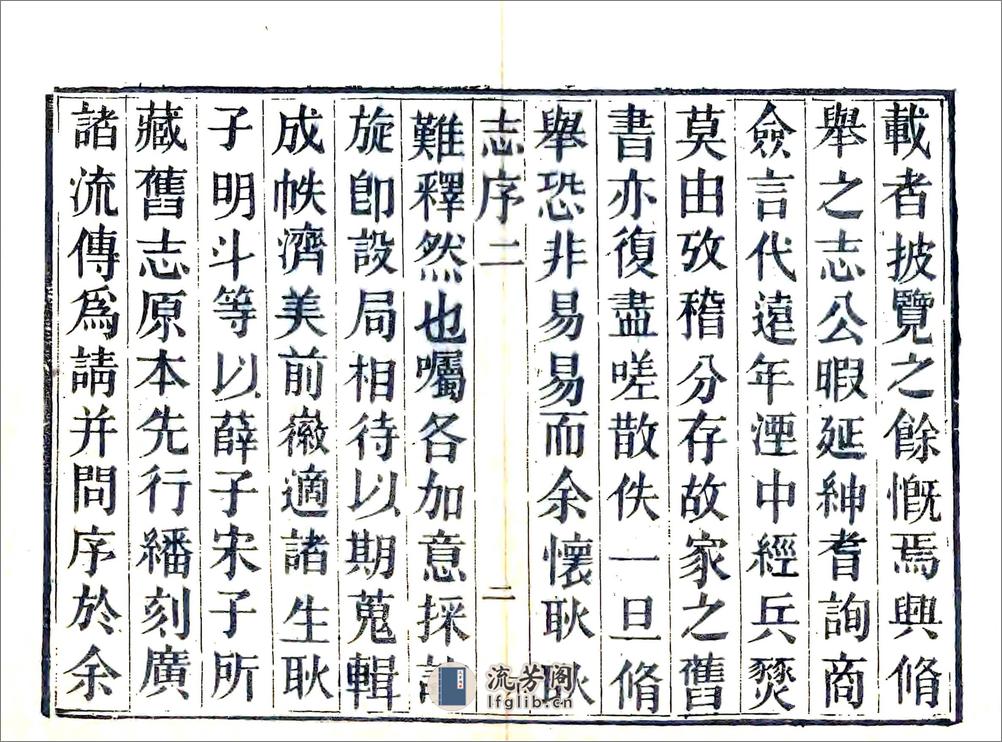 載者披覽之餘慨焉興脩
舉之志公暇延紳耆詢商
僉言代遠年湮中經兵燹
莫由攷稽分存故家之舊
書亦復盡嗟散佚一旦脩
舉恐非易易而余懷耿耿
志序二 二
難釋然也囑各加意採訪
旋卽設局相待以期蒐輯
成帙濟美前徽適諸生耿
子明斗等以薛子宋子所
藏舊志原本先行繙刻廣
諸流傳爲請并問序於余
流芳阁
lfglib.cn